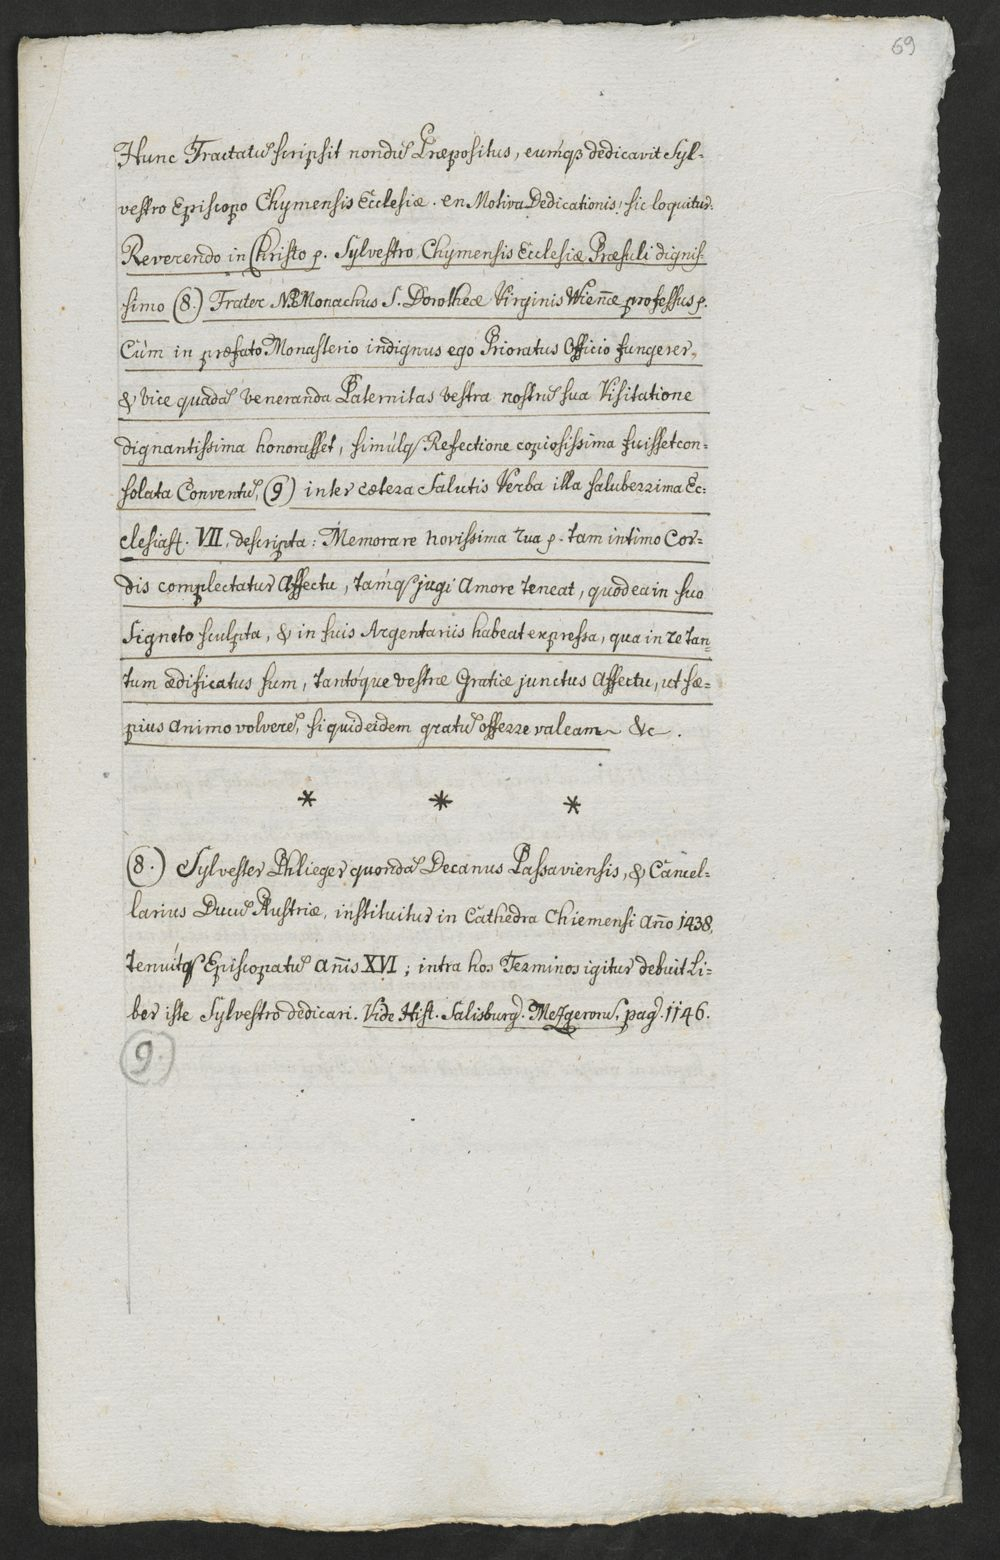 69
Hunc Tractatũ scripsit nondũ Præpositus, eumq₃ dedicavit Syl-
vestro Episcopo Chymensis Ecclesiæ. en Motiva Dedicationis, sic loquitur.
Reverendo in Christo p. Sylvestro Chymensis Ecclesiæ Præsuli dignis-
simo (8.) Frater N. Monachus S. Dorotheæ Virginis Wieñæ professus p.
Cùm in præfato Monasterio indignus ego Prioratus Officio fungerer,
& vice quadã veneranda Paternitas vestra nostrũ sua Visitatione
dignantissima honorasset, simúlq₃ Refectione copiosissima fuisset con-
solata Conventũ, (9) inter cætera Salutis Verba illa saluberrima Ec-
clesiast. VII. descripta: Memorare novissima tua p. tam intimo Cor-
dis complectatur Affectu, tamq₃ jugi Amore teneat, quod ea in suo
Signeto sculpta, & in suis Argentariis habeat expressa, qua in re tan-
tum ædificatus sum, tantóque vestræ Gratiæ junctus Affectu, ut sæ-
pius Animo volverẽ, si quid eidem gratũ offerre valeam &c.
* * *
(8.) Sylvester Phlieger quondã Decanus Passaviensis, & Cancel-
larius Ducũ Austriæ, instituitur in Cathedra Chiemensi Año 1438,
tenuítq₃ Episcopatũ añis XVI; intra hos Terminos igitur debuit Li-
ber iste Sylvestro dedicari. Vide Hist. Salisburg. Mezgerorũ, pag. 1146.
9.